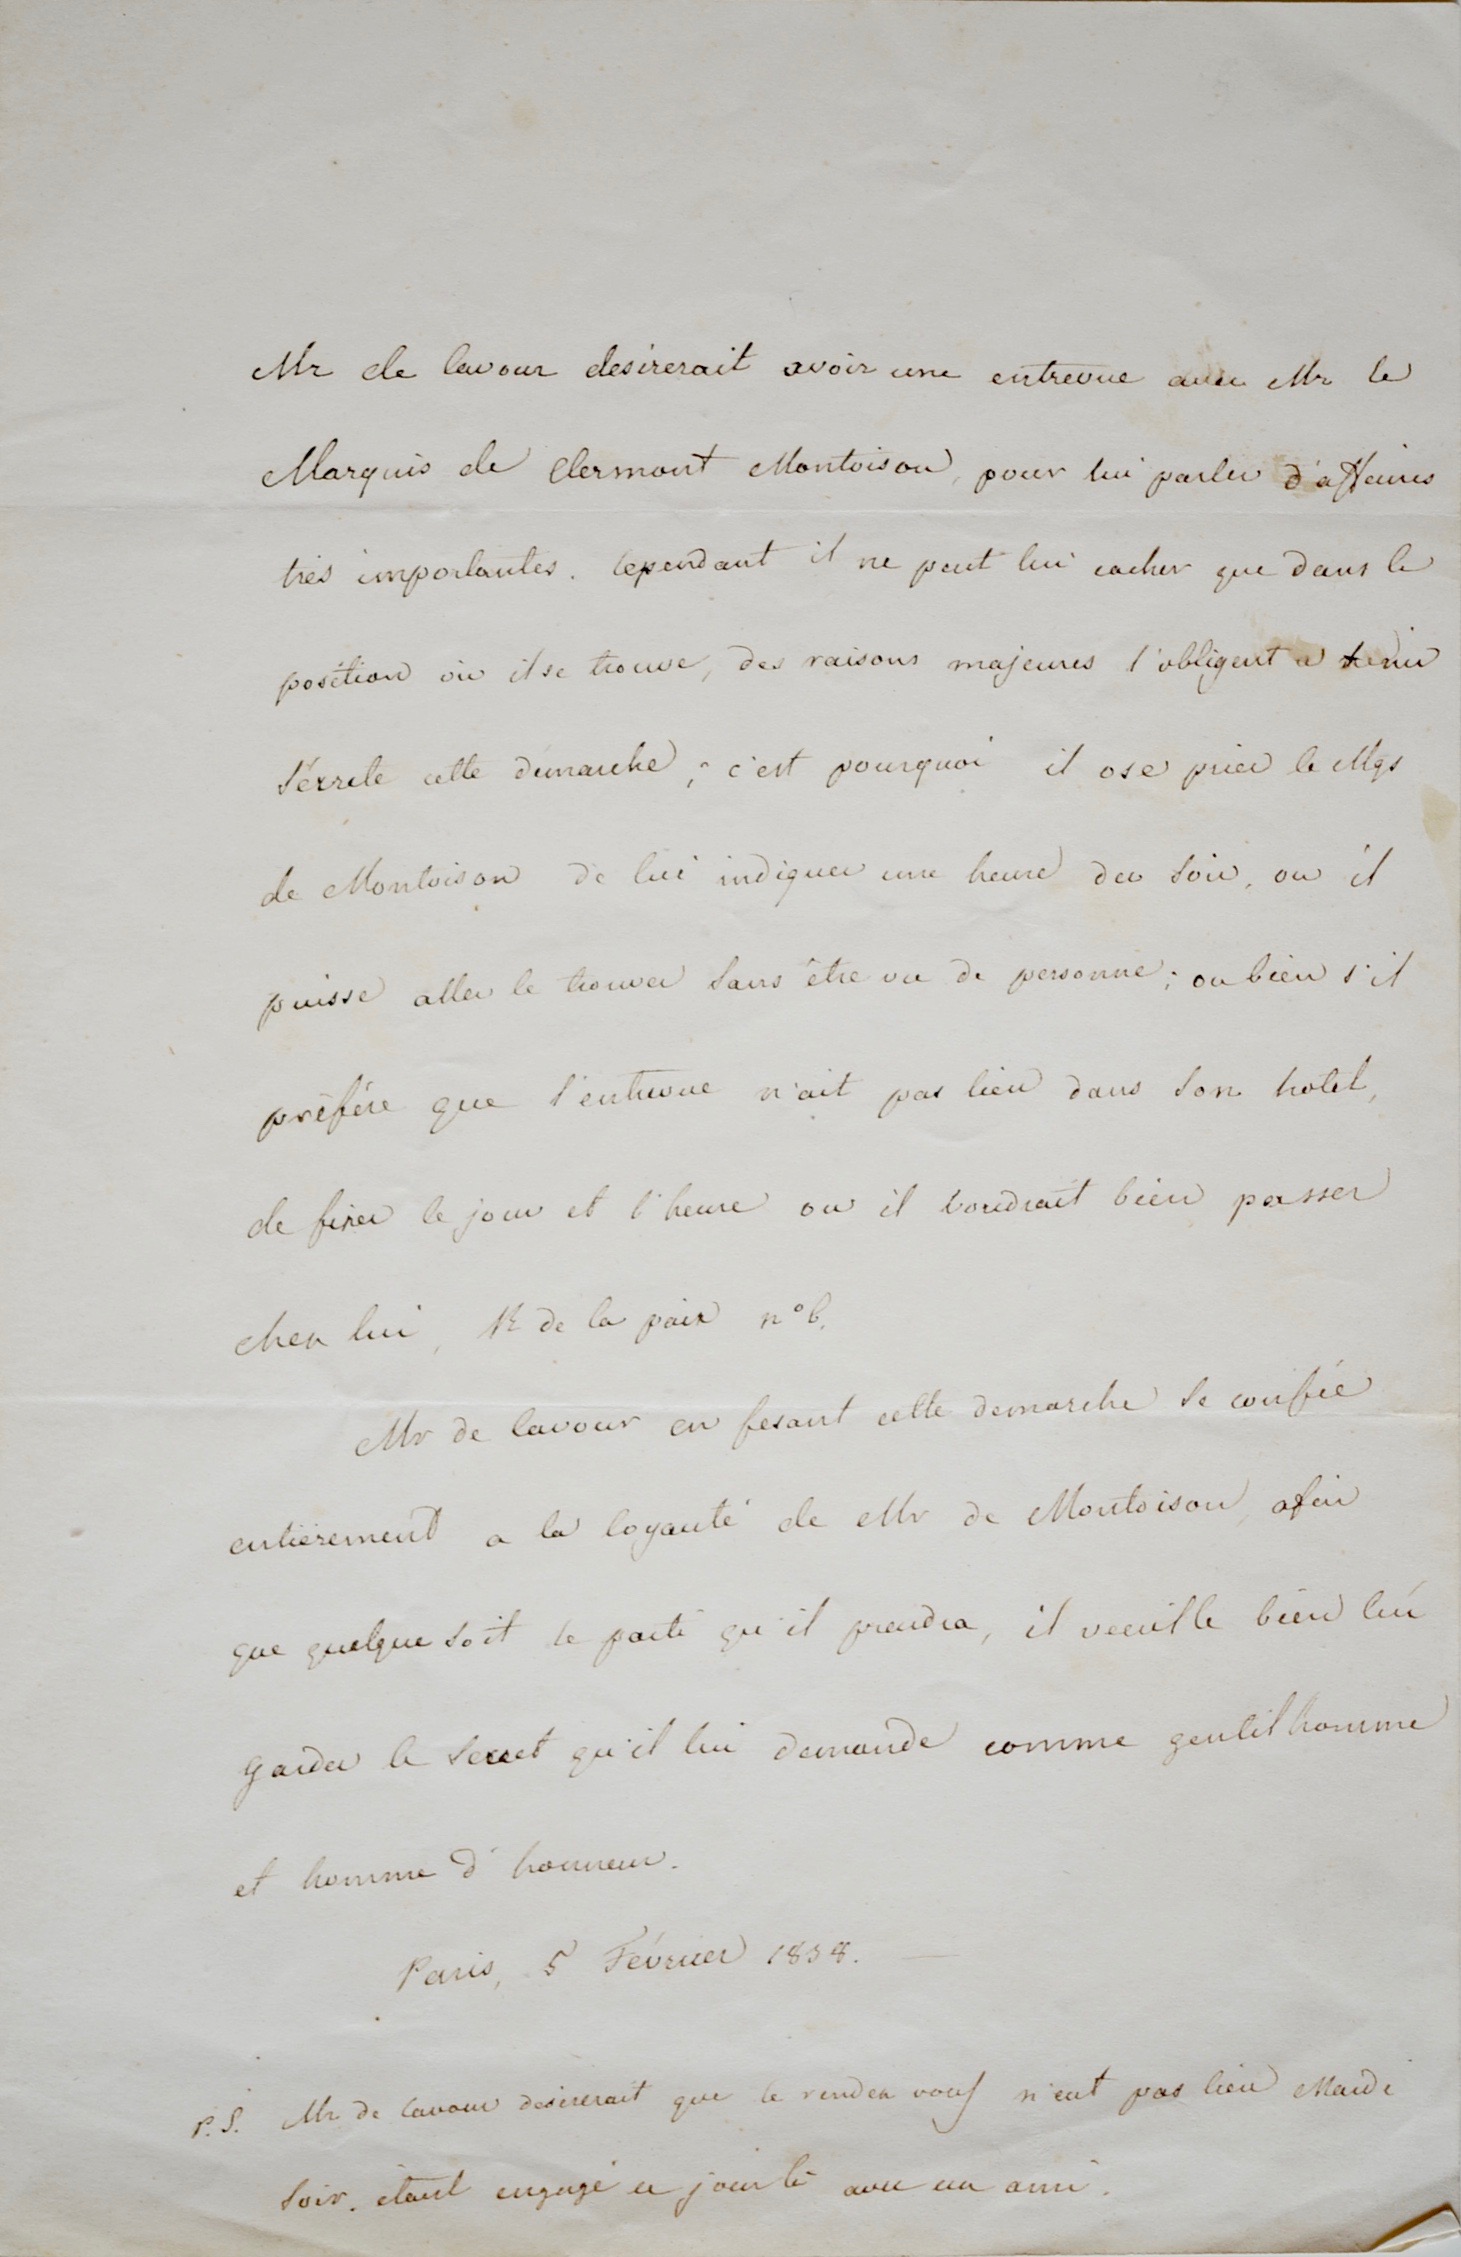 Mr de Cavour desirerait avoir une entrevue avec Mr le
Marquis de Clermont Montoison, pour lui parler d'affaires
tres importantes. Cependant il ne peut lui cacher que dans la
position où il se trouve, des raisons majeures l'obligent a tenir
sécrete cette démarche ; c'est pourquoi il ose prier le Mqs
de Montoison de lui indiquer une heure du soir, ou il
puisse aller le trouver sans être vu de personne ; ou bien s'il
préfére que l'entrevue n'ait pas lieu dans son hotel,
de fixer le jour et l'heure ou il voudrait bien passer
chez lui, R de la paix n° 6.
Mr de Cavour en fesant cette demarche se confie
entièrement a la loyauté de Mr de Montoison, afin
que quelque soit le parti qu'il prendra, il veuille bien lui
garder le secret qu'il lui demande comme gentilhomme
et homme d'honneur.
Paris, 5 Février 1838.
P.S. Mr de Cavour desirerait que le rendez vous n'eut pas lieu Mardi
soir. étant engagé ce jour là avec un ami.